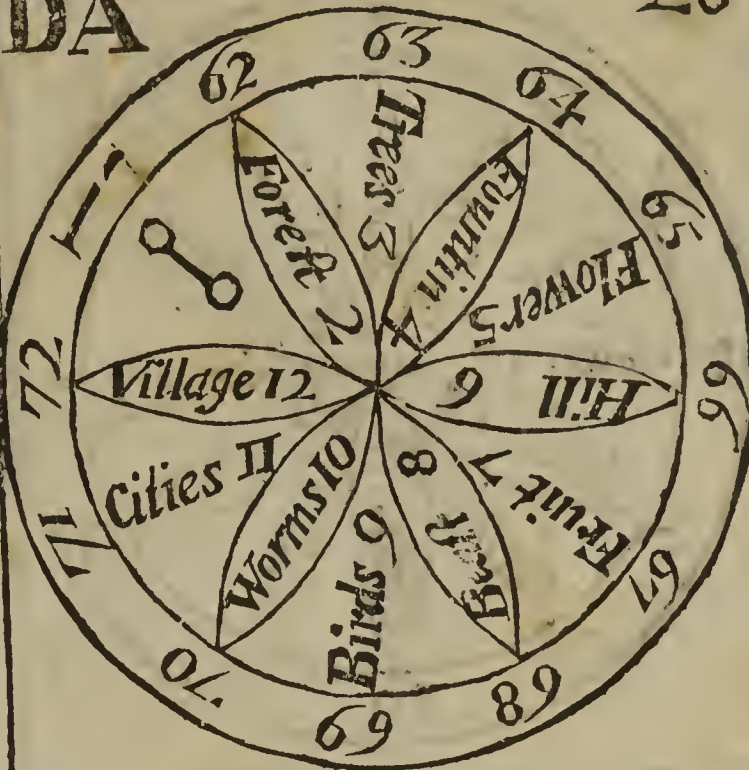 DA
62
63
64
65
66
67
68
69
70
71
72
Foreſt 2
Trees 3
Fountin 4
Flower 5
Hill 6
Fruit 7
Beaſt 8
Birds 9
Worms 10
Cities 11
Village 12